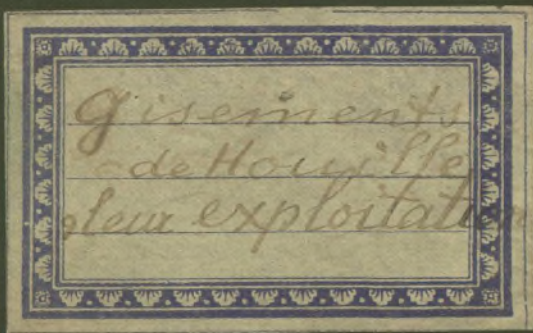 Gisements
de Houille
leur exploitation